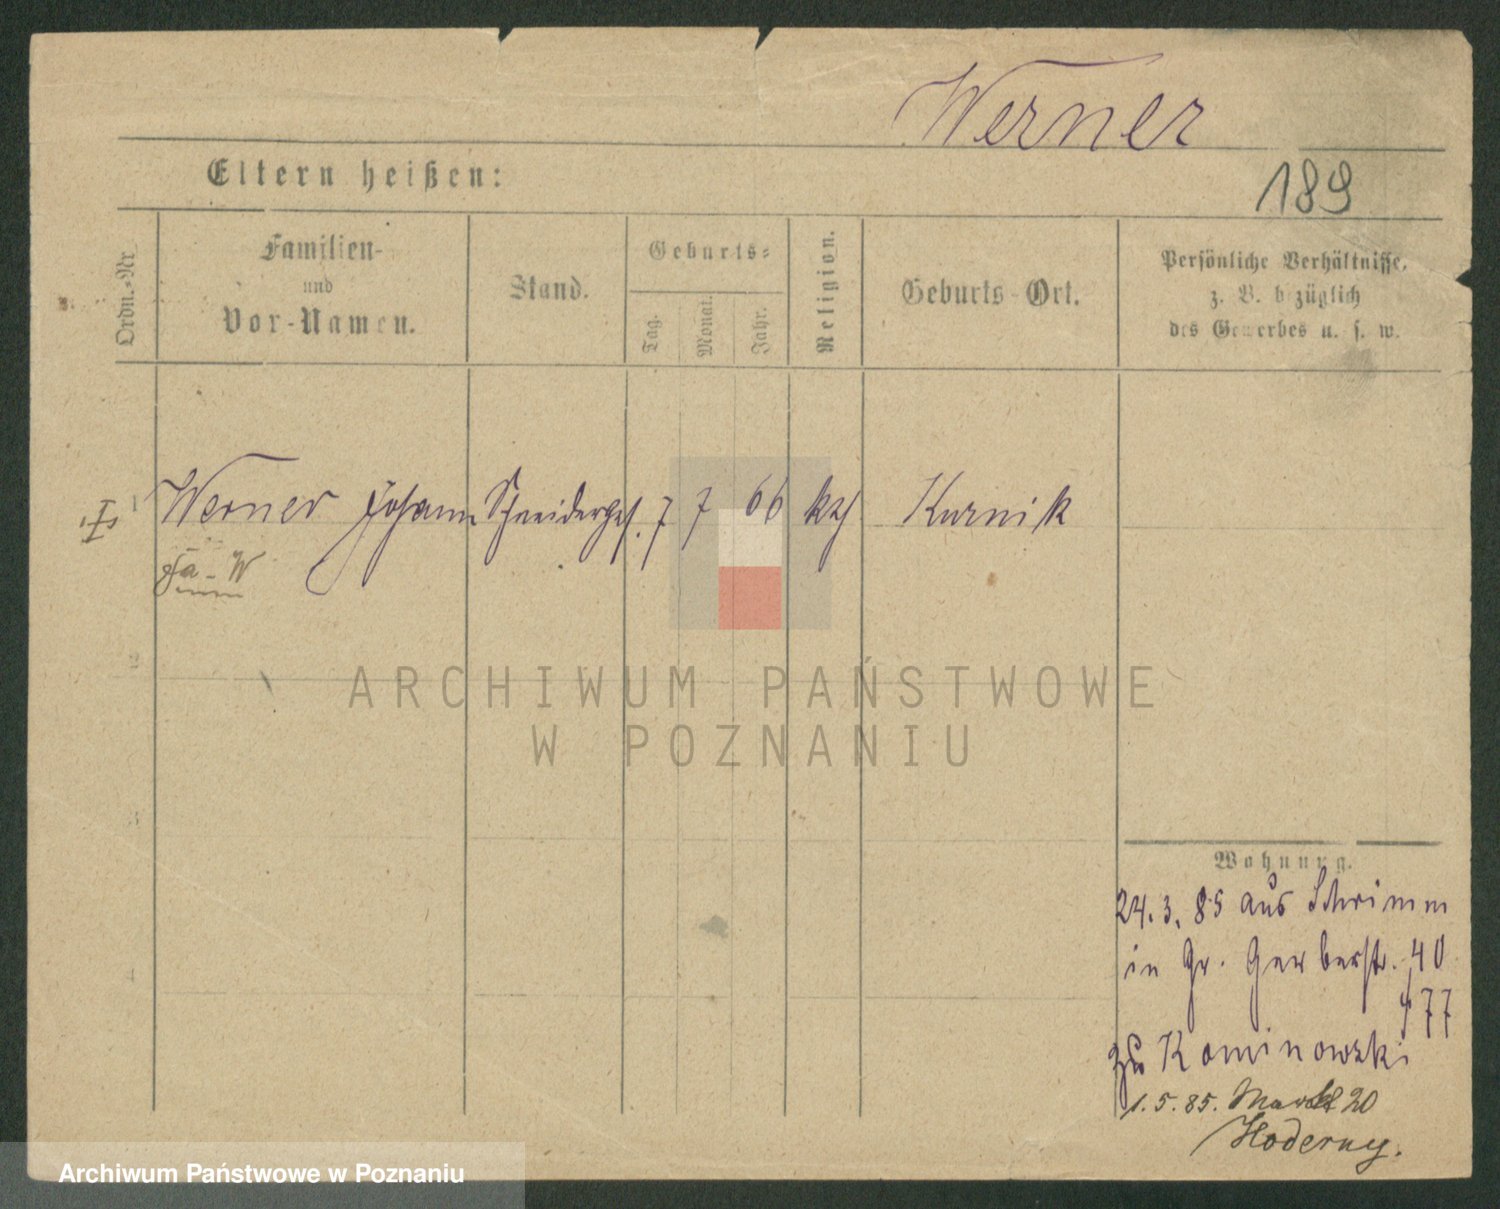 Werner
Eltern heißen:
189
Ordn.-Nr.
Familien-
und
Vor-Namen.
Stand.
Geburts-
Tag.
Monat.
Jahr.
Religion.
Geburts-Ort.
Persönliche Verhältnisse,
z. B. bezüglich
des Gewerbes u. s. w.
1 Werner Johann Schneiderges. 7 7 66 kth Kurnik
2
ARCHIWUM PAŃSTWOWE
W POZNANIU
3
Wohnung.
24. 3. 85 aus Schrimm
in Gr. Gerberstr. 40
4
177
zu Kominowski
1. 5. 85. Markt 20
Hoderny.
Archiwum Państwowe w Poznaniu